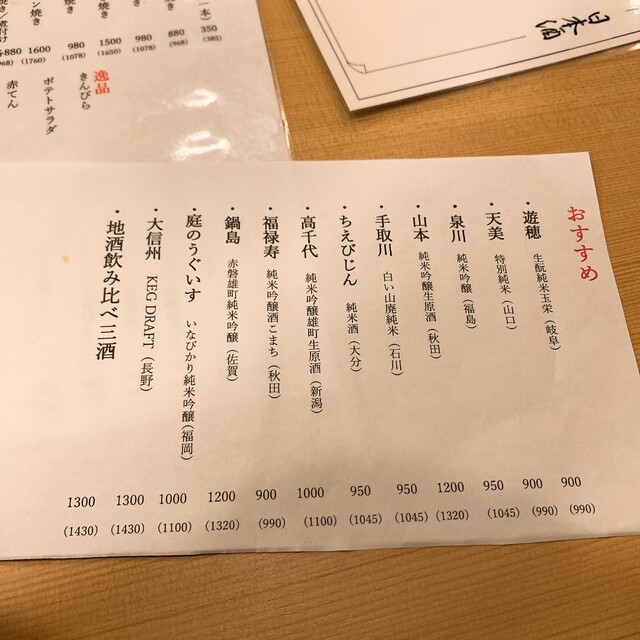 日本酒
一本）
350
(385)
880
(968)
980
(1078)
焼き
1500
(1650)
焼き
980
(1078)
ン焼き
1600
(1760)
焼き/煮付け
各880
逸品
きんぴら
ポテトサラダ
赤てん
おすすめ
・遊穂 生酛純米玉栄（岐阜） 900 (990)
・天美 特別純米（山口） 900 (990)
・泉川 純米吟醸（福島） 950 (1045)
・山本 純米吟醸生原酒（秋田） 1200 (1320)
・手取川 白い山廃純米（石川） 950 (1045)
・ちえびじん 純米酒（大分） 950 (1045)
・高千代 純米吟醸雄町生原酒（新潟） 1000 (1100)
・福禄寿 純米吟醸酒こまち（秋田） 900 (990)
・鍋島 赤磐雄町純米吟醸（佐賀） 1200 (1320)
・庭のうぐいす いなびかり純米吟醸(福岡) 1000 (1100)
・大信州 KEG DRAFT（長野） 1300 (1430)
・地酒飲み比べ三酒 1300 (1430)